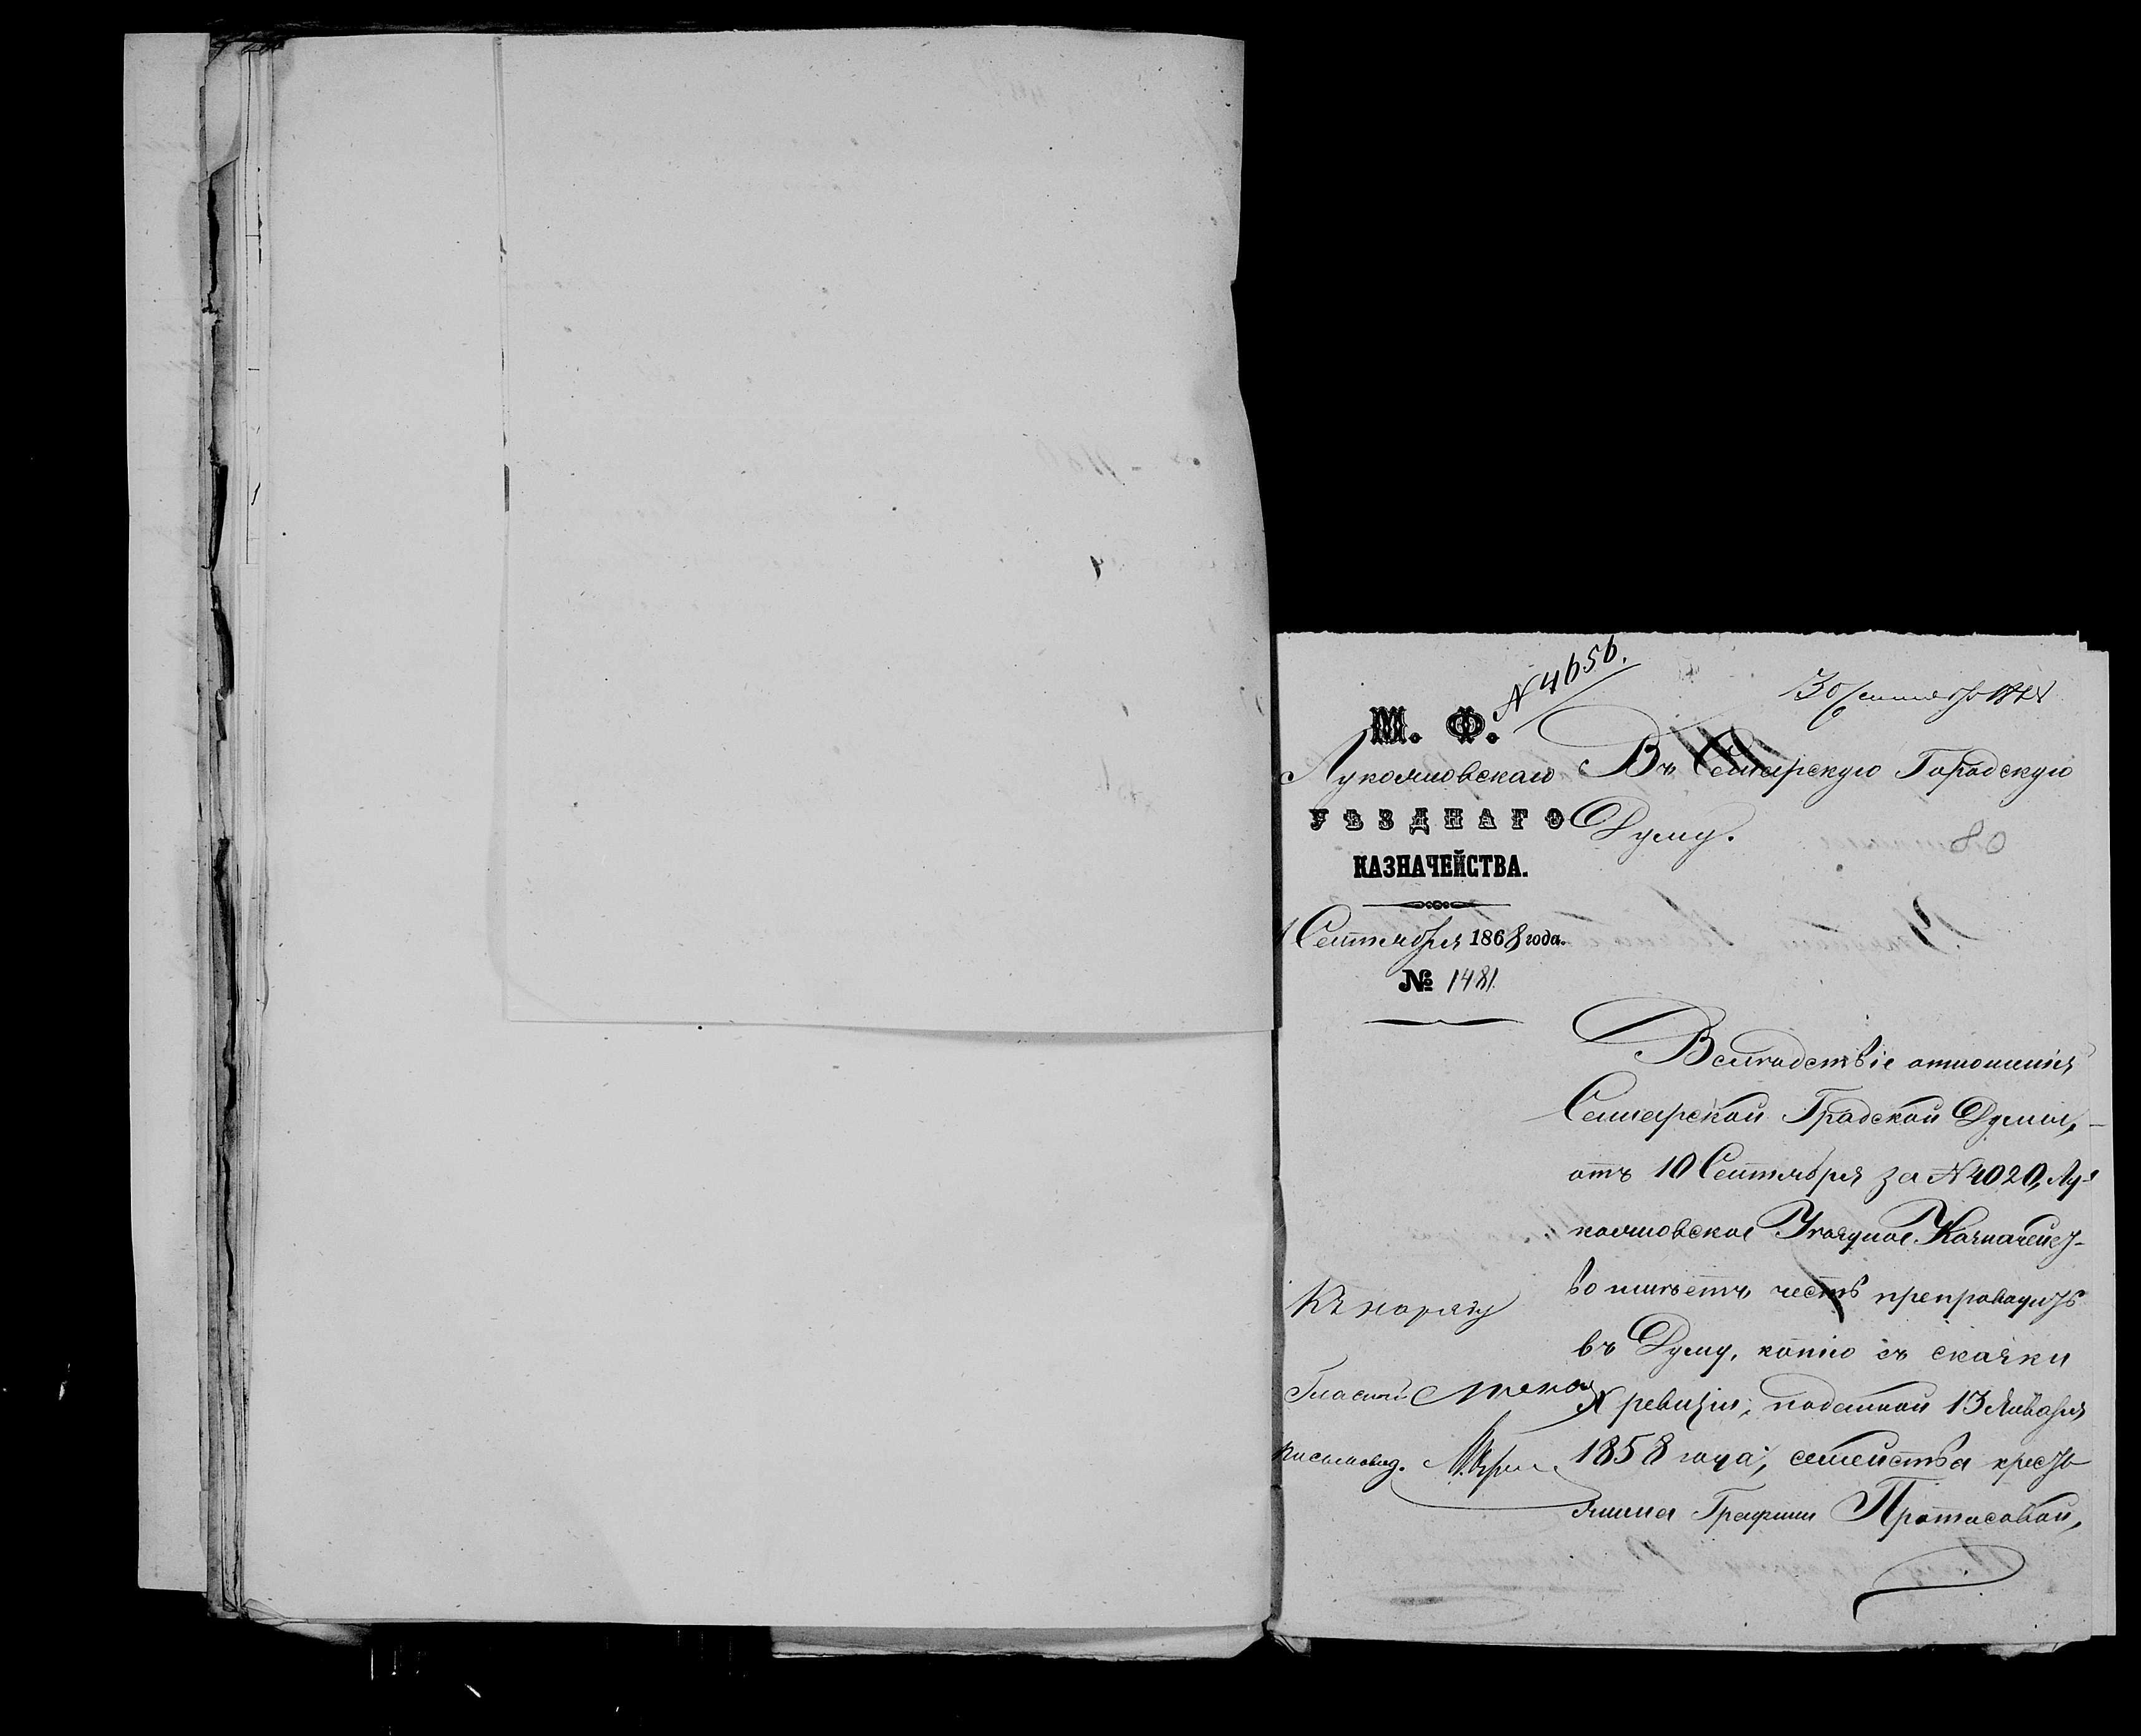 № 4656.
30 Сентября 1868
М. Ф.
Лукояновскаго
УѢЗДНАГО
КАЗНАЧЕЙСТВА.
Сентября 1868 года.
№ 1481.
Въ Самарскую Городскую
Думу.
Вслѣдствіе отношенія
Самарской Градской Думы,
отъ 10 Сентября за № 4020, Лу-
кояновское Уѣздное Казначейст-
во имѣетъ честь препроводить
въ Думу, копію съ сказки
X ревизіи, поданной 13 Января
1858 года, семейства кресть
янина Графини Протасовой,
Къ наряду
Гласный
Письмовод.